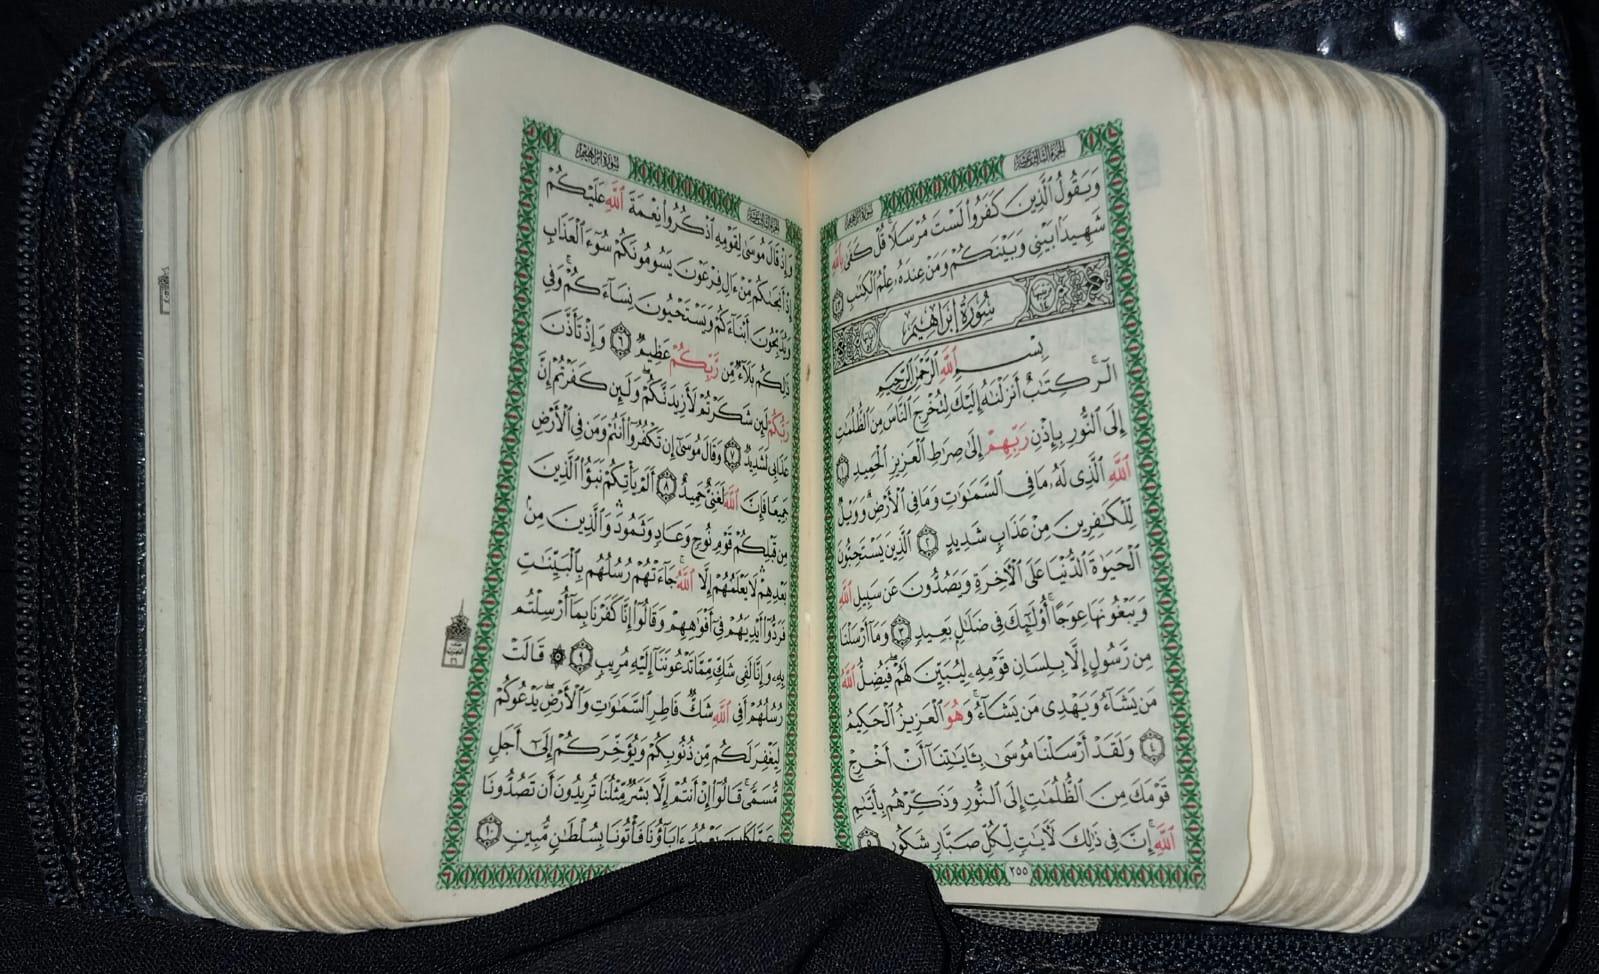 الجزء الثالث عشر
سورة إبراهيم
وَيَقُولُ ٱلَّذِينَ كَفَرُوا۟ لَسْتَ مُرْسَلًا ۚ قُلْ كَفَىٰ بِٱللَّهِ
شَهِيدًۢا بَيْنِى وَبَيْنَكُمْ وَمَنْ عِندَهُۥ عِلْمُ ٱلْكِتَٰبِ ٤٣
سُورَةُ إِبْرَاهِيمَ
بِسْمِ ٱللَّهِ ٱلرَّحْمَٰنِ ٱلرَّحِيمِ
الٓر ۚ كِتَٰبٌ أَنزَلْنَٰهُ إِلَيْكَ لِتُخْرِجَ ٱلنَّاسَ مِنَ ٱلظُّلُمَٰتِ
إِلَى ٱلنُّورِ بِإِذْنِ رَبِّهِمْ إِلَىٰ صِرَٰطِ ٱلْعَزِيزِ ٱلْحَمِيدِ ١
ٱللَّهِ ٱلَّذِى لَهُۥ مَا فِى ٱلسَّمَٰوَٰتِ وَمَا فِى ٱلْأَرْضِ ۗ وَوَيْلٌ
لِّلْكَٰفِرِينَ مِنْ عَذَابٍ شَدِيدٍ ٢ ٱلَّذِينَ يَسْتَحِبُّونَ
ٱلْحَيَوٰةَ ٱلدُّنْيَا عَلَى ٱلْأَخِرَةِ وَيَصُدُّونَ عَن سَبِيلِ ٱللَّهِ
وَيَبْغُونَهَا عِوَجًا ۚ أُو۟لَٰٓئِكَ فِى ضَلَٰلٍۭ بَعِيدٍ ٣ وَمَآ أَرْسَلْنَا
مِن رَّسُولٍ إِلَّا بِلِسَانِ قَوْمِهِۦ لِيُبَيِّنَ لَهُمْ ۖ فَيُضِلُّ ٱللَّهُ
مَن يَشَآءُ وَيَهْدِى مَن يَشَآءُ ۚ وَهُوَ ٱلْعَزِيزُ ٱلْحَكِيمُ
٤ وَلَقَدْ أَرْسَلْنَا مُوسَىٰ بِـَٔايَٰتِنَآ أَنْ أَخْرِجْ
قَوْمَكَ مِنَ ٱلظُّلُمَٰتِ إِلَى ٱلنُّورِ وَذَكِّرْهُم بِأَيَّىٰمِ
ٱللَّهِ ۚ إِنَّ فِى ذَٰلِكَ لَأَيَٰتٍ لِّكُلِّ صَبَّارٍ شَكُورٍ ٥
٢٥٥
الجزء الثالث عشر
سورة إبراهيم
وَإِذْ قَالَ مُوسَىٰ لِقَوْمِهِ ٱذْكُرُوا۟ نِعْمَةَ ٱللَّهِ عَلَيْكُمْ
إِذْ أَنجَىٰكُم مِّنْ ءَالِ فِرْعَوْنَ يَسُومُونَكُمْ سُوٓءَ ٱلْعَذَابِ
وَيُذَبِّحُونَ أَبْنَآءَكُمْ وَيَسْتَحْيُونَ نِسَآءَكُمْ ۚ وَفِى
ذَٰلِكُم بَلَآءٌ مِّن رَّبِّكُمْ عَظِيمٌ ٦ وَإِذْ تَأَذَّنَ
رَبُّكُمْ لَئِن شَكَرْتُمْ لَأَزِيدَنَّكُمْ ۖ وَلَئِن كَفَرْتُمْ إِنَّ
عَذَابِى لَشَدِيدٌ ٧ وَقَالَ مُوسَىٰٓ إِن تَكْفُرُوٓا۟ أَنتُمْ وَمَن فِى ٱلْأَرْضِ
جَمِيعًا فَإِنَّ ٱللَّهَ لَغَنِىٌّ حَمِيدٌ ٨ أَلَمْ يَأْتِكُمْ نَبَؤُا۟ ٱلَّذِينَ
مِن قَبْلِكُمْ قَوْمِ نُوحٍ وَعَادٍ وَثَمُودَ ۛ وَٱلَّذِينَ مِنۢ
بَعْدِهِمْ ۛ لَا يَعْلَمُهُمْ إِلَّا ٱللَّهُ ۚ جَآءَتْهُمْ رُسُلُهُم بِٱلْبَيِّنَٰتِ
فَرَدُّوٓا۟ أَيْدِيَهُمْ فِىٓ أَفْوَٰهِهِمْ وَقَالُوٓا۟ إِنَّا كَفَرْنَا بِمَآ أُرْسِلْتُم
بِهِۦ وَإِنَّا لَفِى شَكٍّ مِّمَّا تَدْعُونَنَآ إِلَيْهِ مُرِيبٍ ٩ ۞ قَالَتْ
رُسُلُهُمْ أَفِى ٱللَّهِ شَكٌّ فَاطِرِ ٱلسَّمَٰوَٰتِ وَٱلْأَرْضِ ۖ يَدْعُوكُمْ
لِيَغْفِرَ لَكُم مِّن ذُنُوبِكُمْ وَيُؤَخِّرَكُمْ إِلَىٰٓ أَجَلٍ
مُّسَمًّى ۚ قَالُوٓا۟ إِنْ أَنتُمْ إِلَّا بَشَرٌ مِّثْلُنَا تُرِيدُونَ أَن تَصُدُّونَا
عَمَّا كَانَ يَعْبُدُ ءَابَآؤُنَا فَأْتُونَا بِسُلْطَٰنٍ مُّبِينٍ ١٠